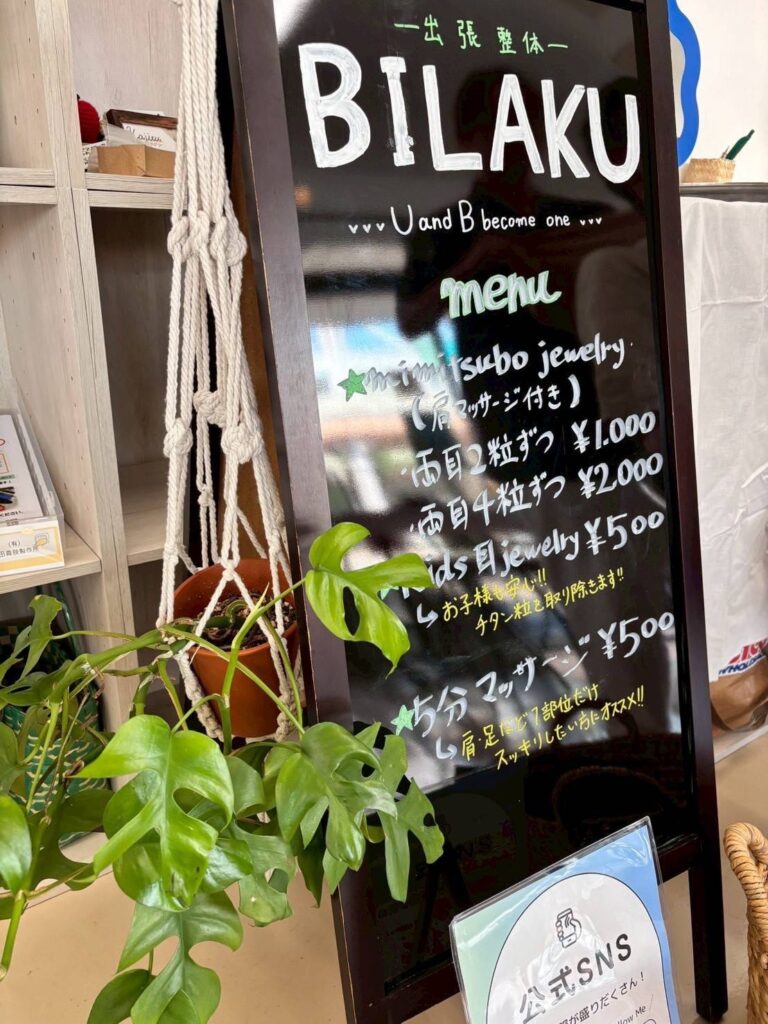 ―出張整体―
BILAKU
U and B become one
menu
mimitsubo jewelry
(肩マッサージ付き)
・両耳2粒ずつ ¥1.000
・両耳4粒ずつ ¥2.000
Kids耳jewelry ¥500
↳お子様も安心!!
チタン粒を取り除きます!!
5分マッサージ ¥500
↳肩・足など1部位だけ
スッキリしたい方にオススメ!!
公式SNS
が盛りだくさん!
low Me
(有)